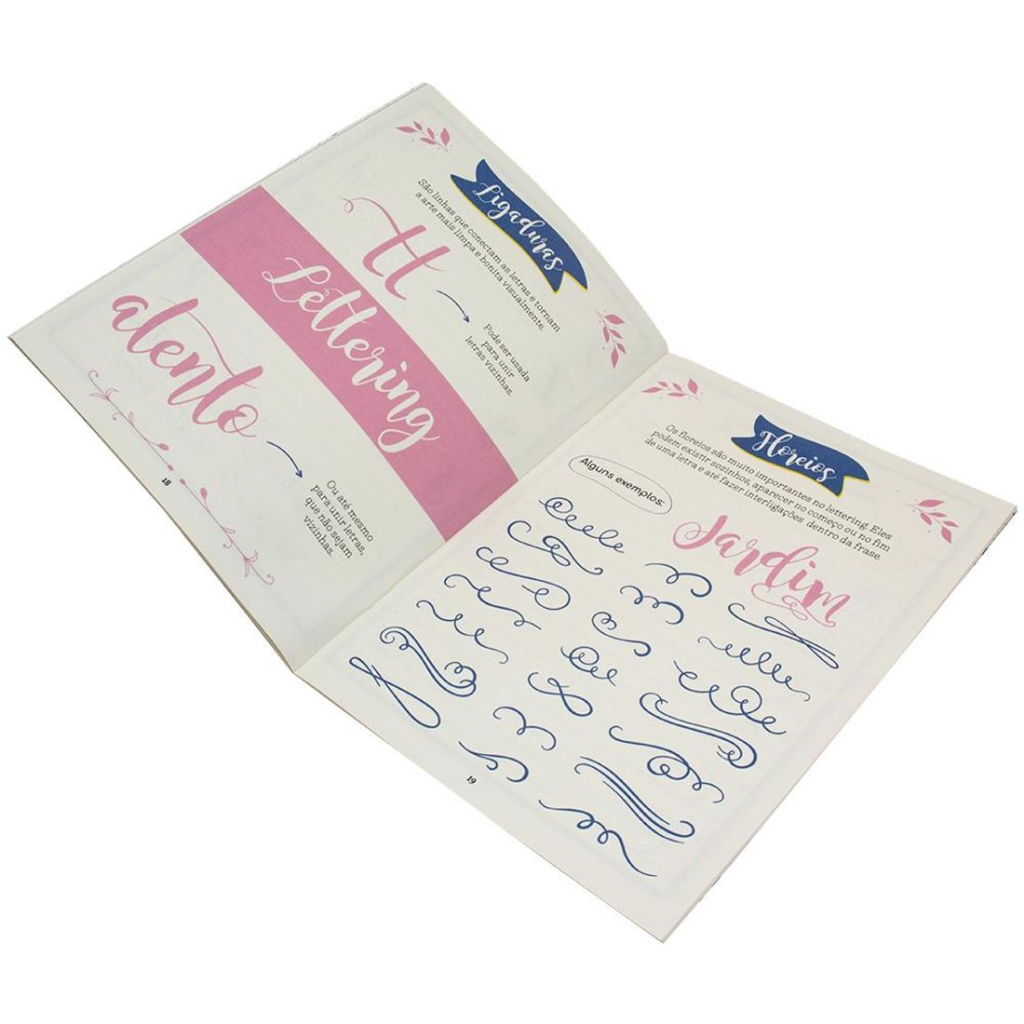 Ligaduras
São linhas que conectam as letras e tornam
a arte mais limpa e bonita visualmente.
tt
Pode ser usada
para unir
letras vizinhas.
Lettering
atento
Ou até mesmo
para unir letras,
que não sejam
vizinhas.
18
Floreios
Os floreios são muito importantes no lettering. Eles
podem existir sozinhos, aparecer no começo ou no fim
de uma letra e até fazer interligações dentro da frase.
Alguns exemplos:
Jardim
19